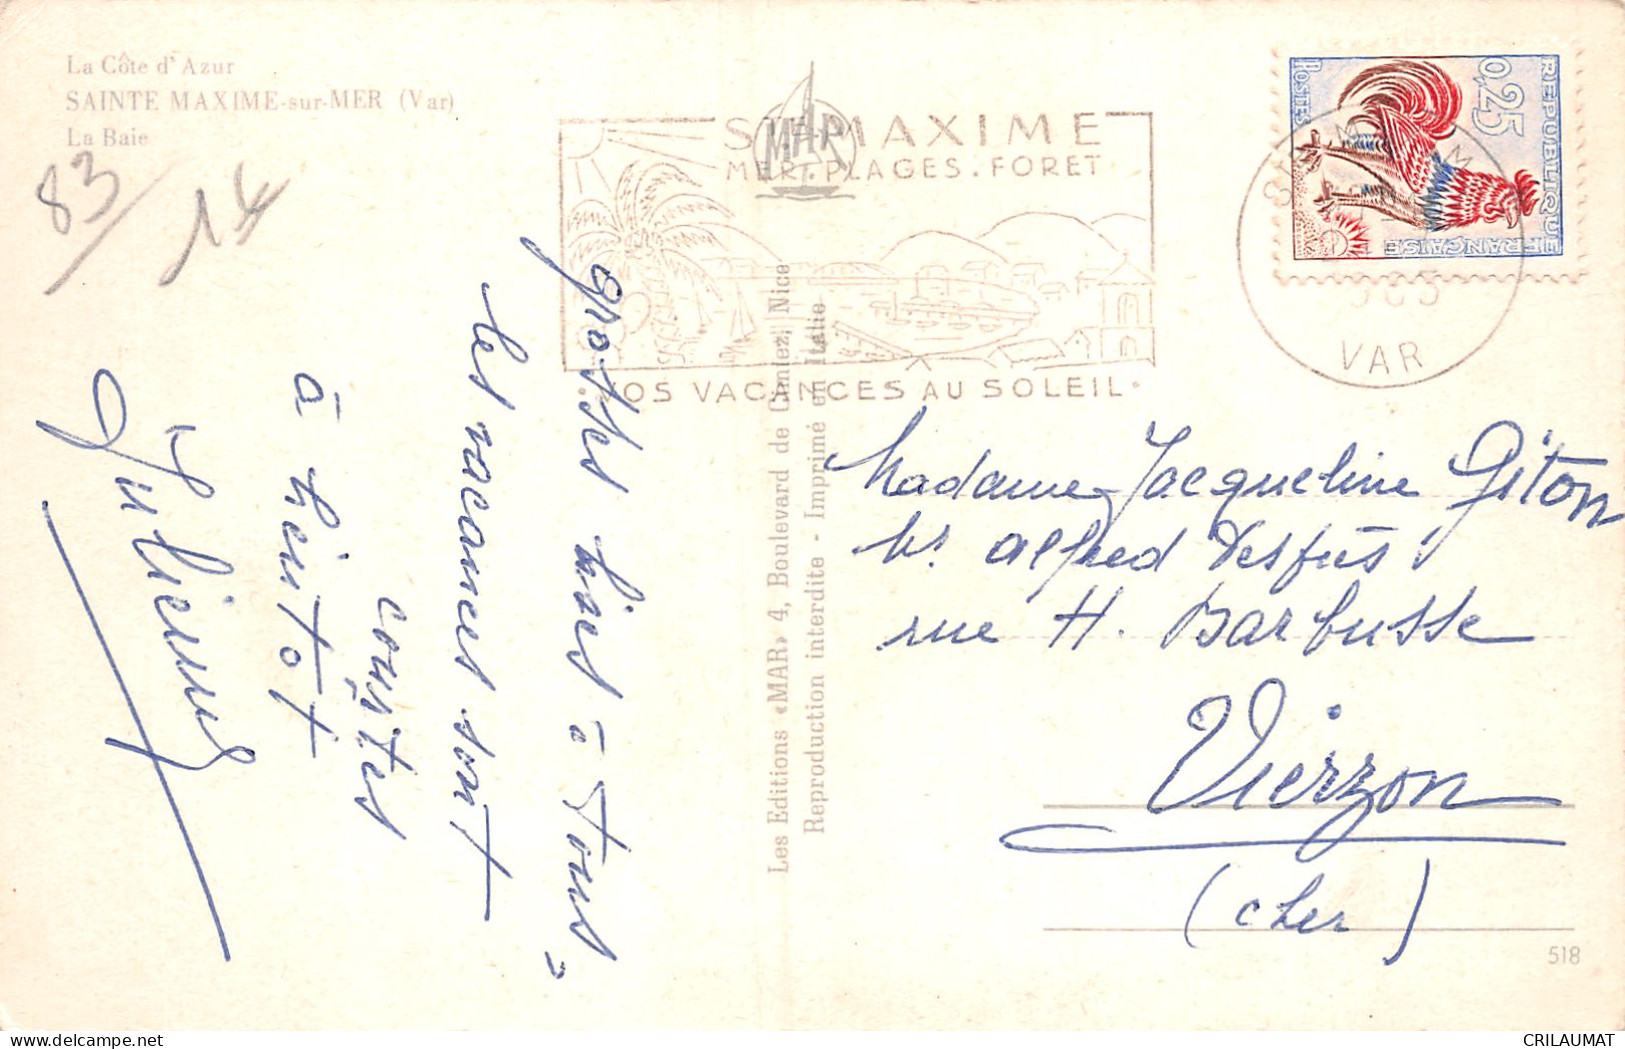 La Côte d'Azur
SAINTE MAXIME-sur-MER (Var)
La Baie
83
14
MAR
STE MAXIME
MER. PLAGES. FORET
VOS VACANCES AU SOLEIL
VAR
REPUBLIQUE
FRANÇAISE
0,25
POSTES
grosses bises à tous,
les vacances sont
courtes
à bientot
Les Editions «MAR» 4, Boulevard de Cimiez, Nice
Reproduction interdite - Imprimé en Italie
Madame Jacqueline Giton
alfred Desfús
rue H. Barbusse
Vierzon
(cher)
518
CRILAUMAT